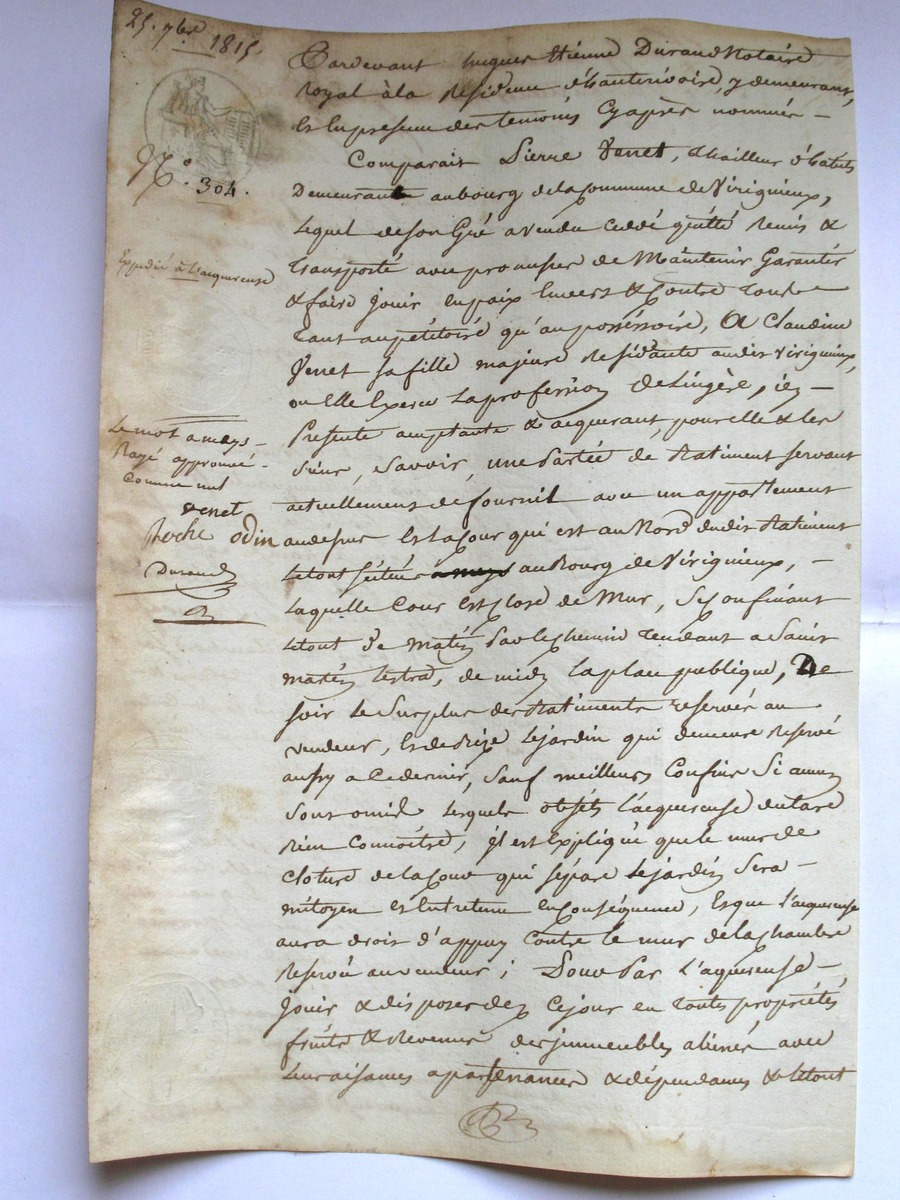 25. 7bre 1815.
N.º 304.
Expedié à l'acquereuse
Le mot amays
Rayé approuvé
Comme nul
venet
Roche odin
Durand
Pardevant hugues Etienne Durand Notaire
Royal à la Residence d'hauterivoire, y demeurant,
Et En presence des temoins Cy après nommés –
Comparait Pierre Venet, tailleur d'habits
Demeurant au bourg de la Commune de Virignieux,
Lequel de son Gré a vendu Ceddé quitté Remis &
Transporté avec promesse de Maintenir Garantir
& faire Jouir en paix Envers & Contre Tous –
Tant au pétitoire qu'au posséssoire, A Claudine
Venet sa fille majeure Residante audit Virignieux,
ou Elle Exerce La profession De Lingère, icy –
Présente acceptante & acquerant, pour elle & les
Siens, Savoir, une Partie de Batiment servant
actuellement de fournil avec un appartement
au dessus Et la Cour qui est au Nord dudit Batiment
Le tout situé amays au Bourg de Virignieux, –
Laquelle Cour Est Close de Mur, Se Confinant
Le tout De matin Par le chemin Tendant a Saint
martin Lestra, de midy La place publique, De
soir le Surplus des Batiments reservés au
vendeur, Et de Bize Le jardin qui demeure Reservé
aussy a Ce dernier, Sauf meilleurs Confins Si aucuns
Sont omis Lesquels objéts l'acquereuse a declaré
Bien Connoitre, il est Expliqué que le mur de
Cloture de la Cour qui sépare Le jardin Sera –
mitoyen et Entretenu en Conséquence, Et que l'acquereuse
aura droit d'appuy Contre le mur de la Chambre
Reservée au vendeur; Pour Par L'aquereuse –
Jouir & disposer dez Ce jour en toutes propriétés
fruits & Revenus des jmmeubles aliénés avec
Leurs aisances apartenances & dépendances & Le tout